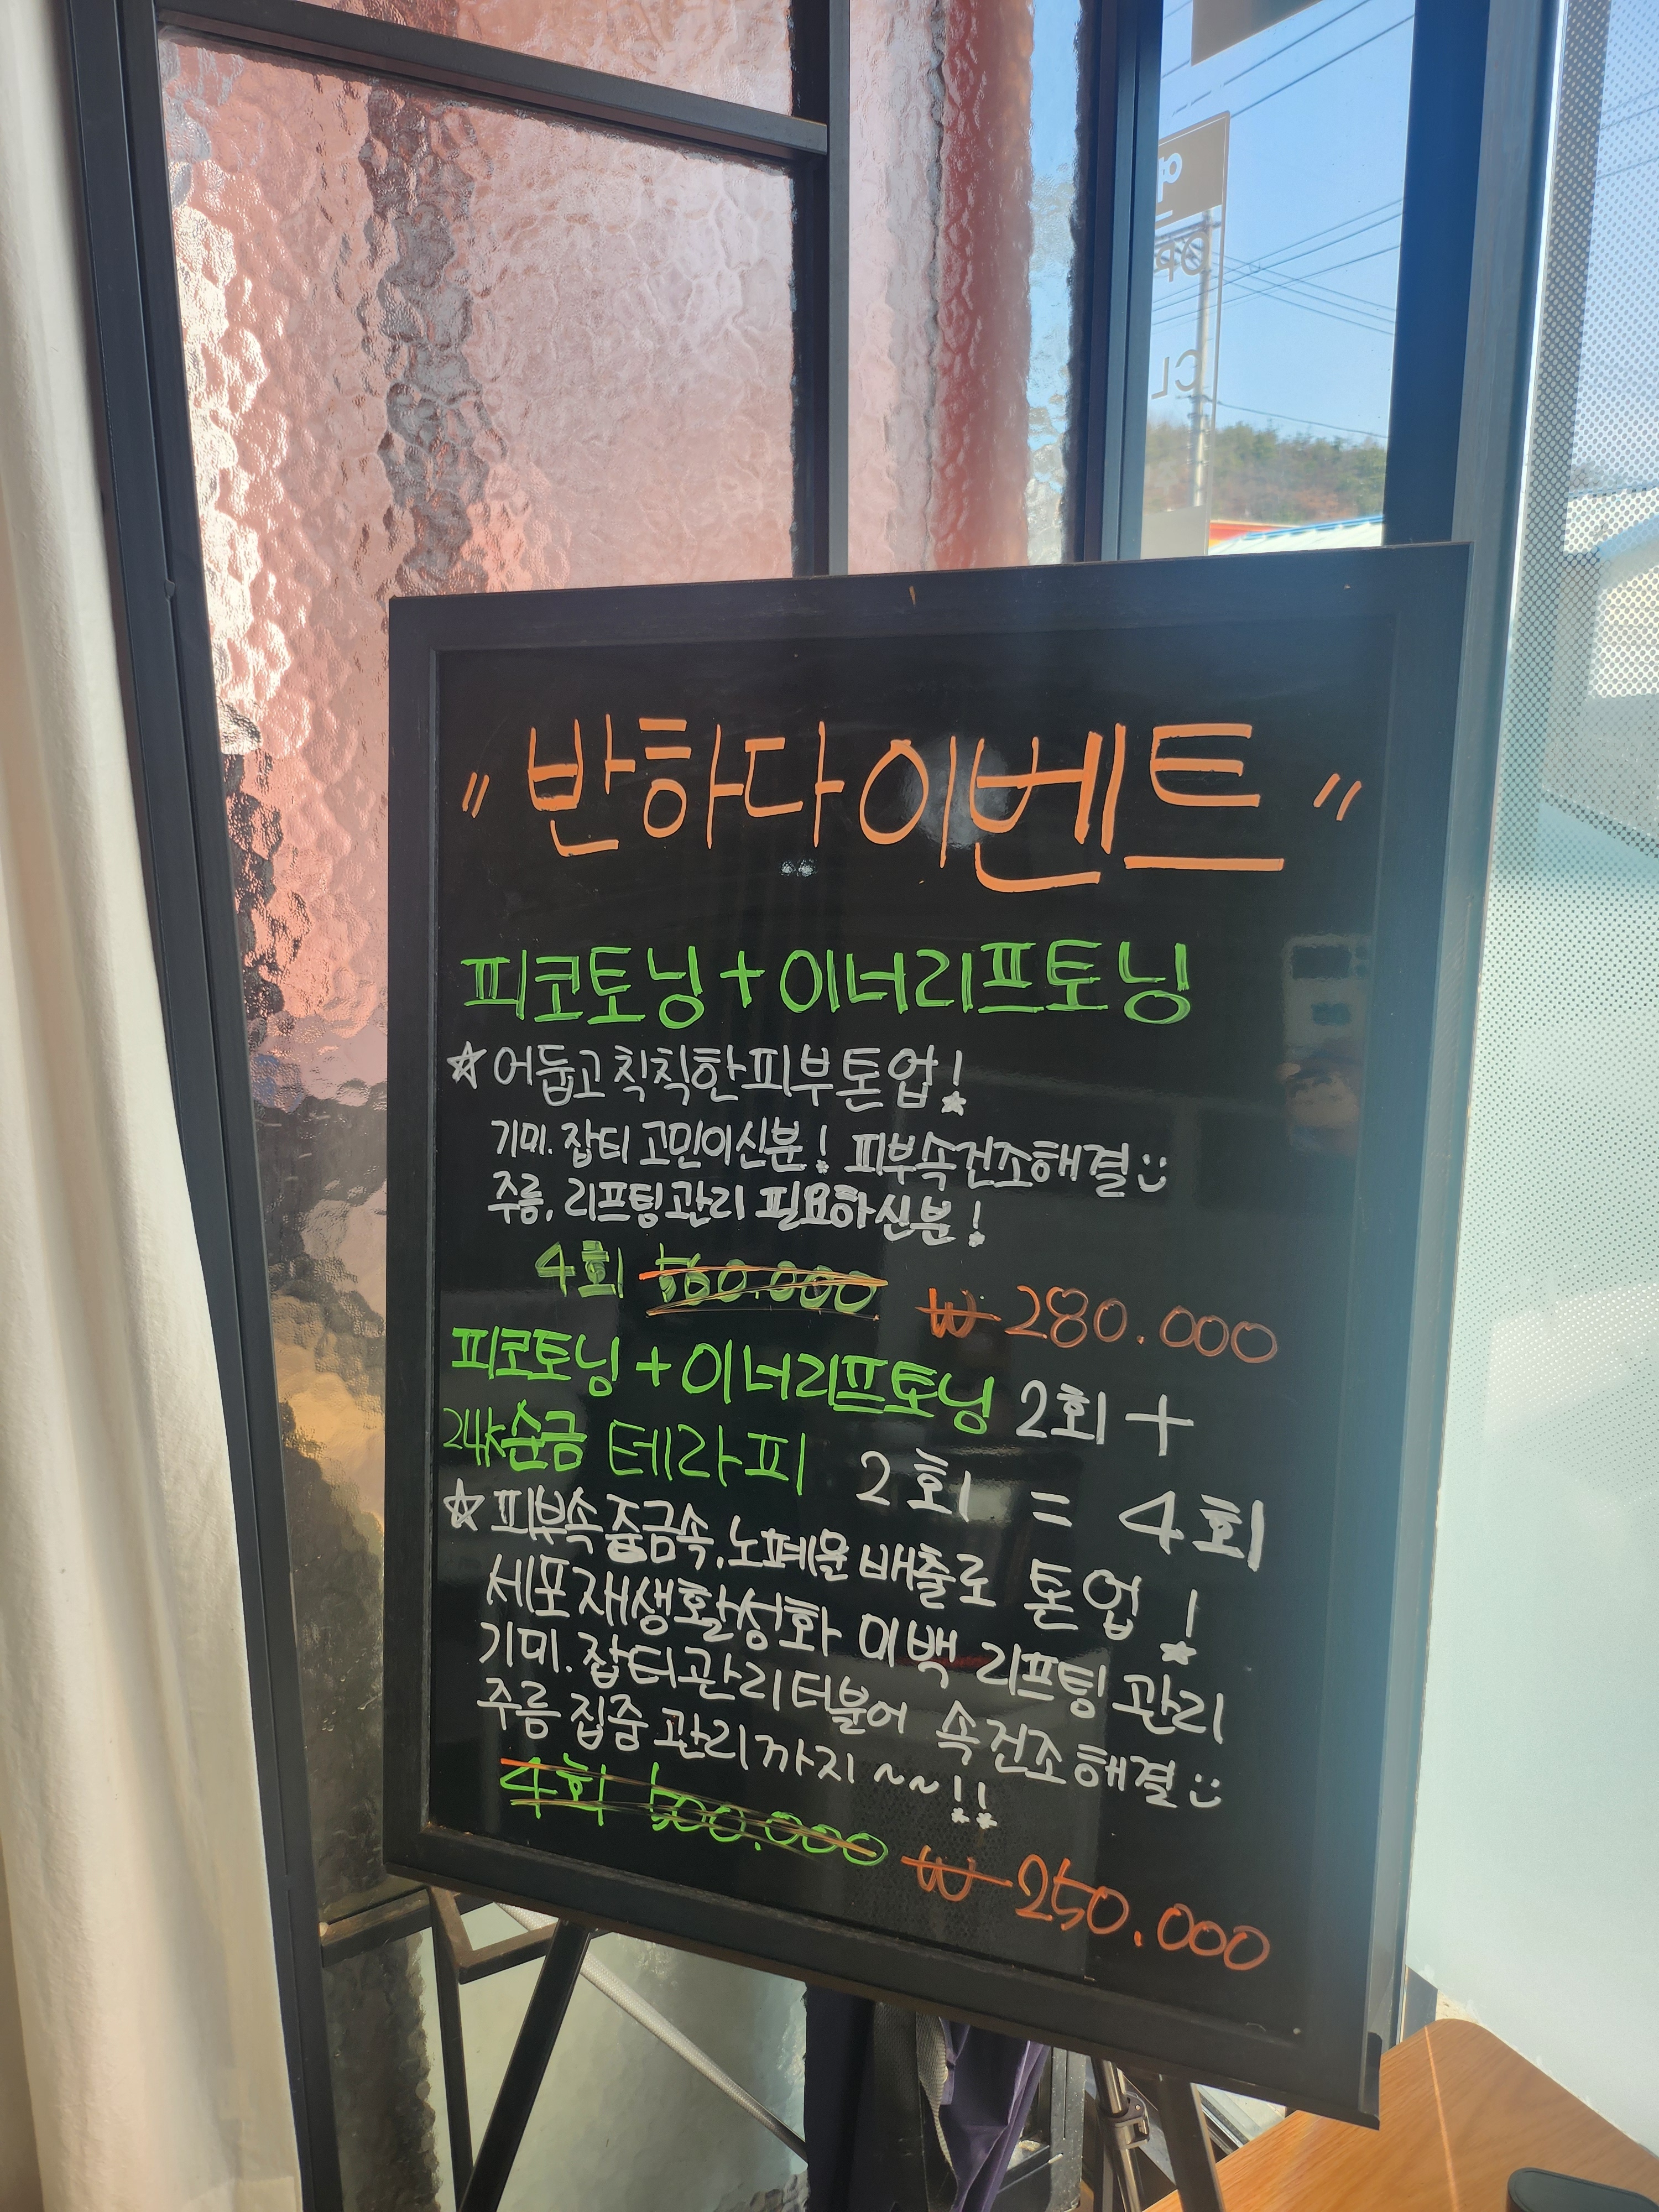 " 반하다이벤트 "
피코토닝 + 이너리프토닝
☆ 어둡고 칙칙한 피부 톤업!
기미. 잡티 고민이신분! 피부속건조해결
주름, 리프팅관리 필요하신분!
4회 560.000 ₩ 280.000
피코토닝 + 이너리프토닝 2회 +
24k순금 테라피 2회 = 4회
☆ 피부속 중금속, 노폐물 배출로 톤업!
세포 재생활성화 미백 리프팅 관리
기미. 잡티관리 터불어 속건조 해결
주름 집중 관리까지 ~~!!
4회 500.000 ₩ 250.000
CL